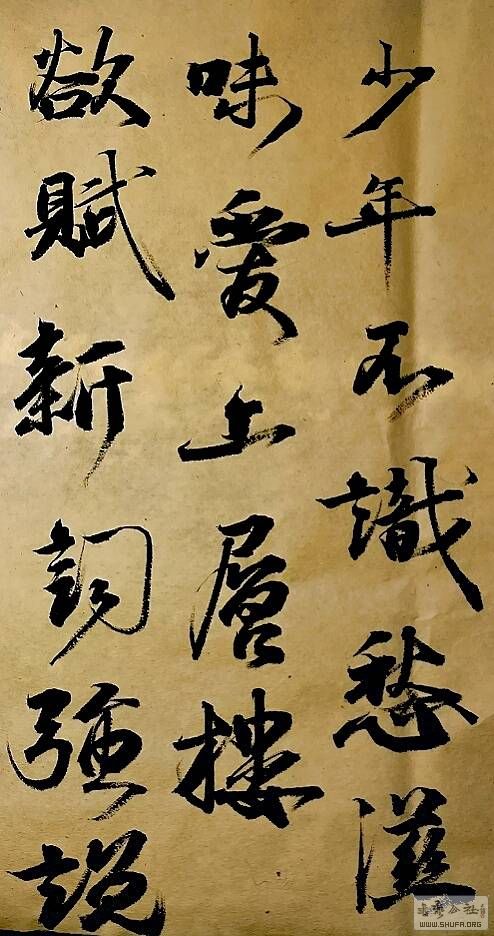 少年不識愁滋
味愛上層樓
欲賦新詞強說
書學公社
WWW.SHUFA.ORG